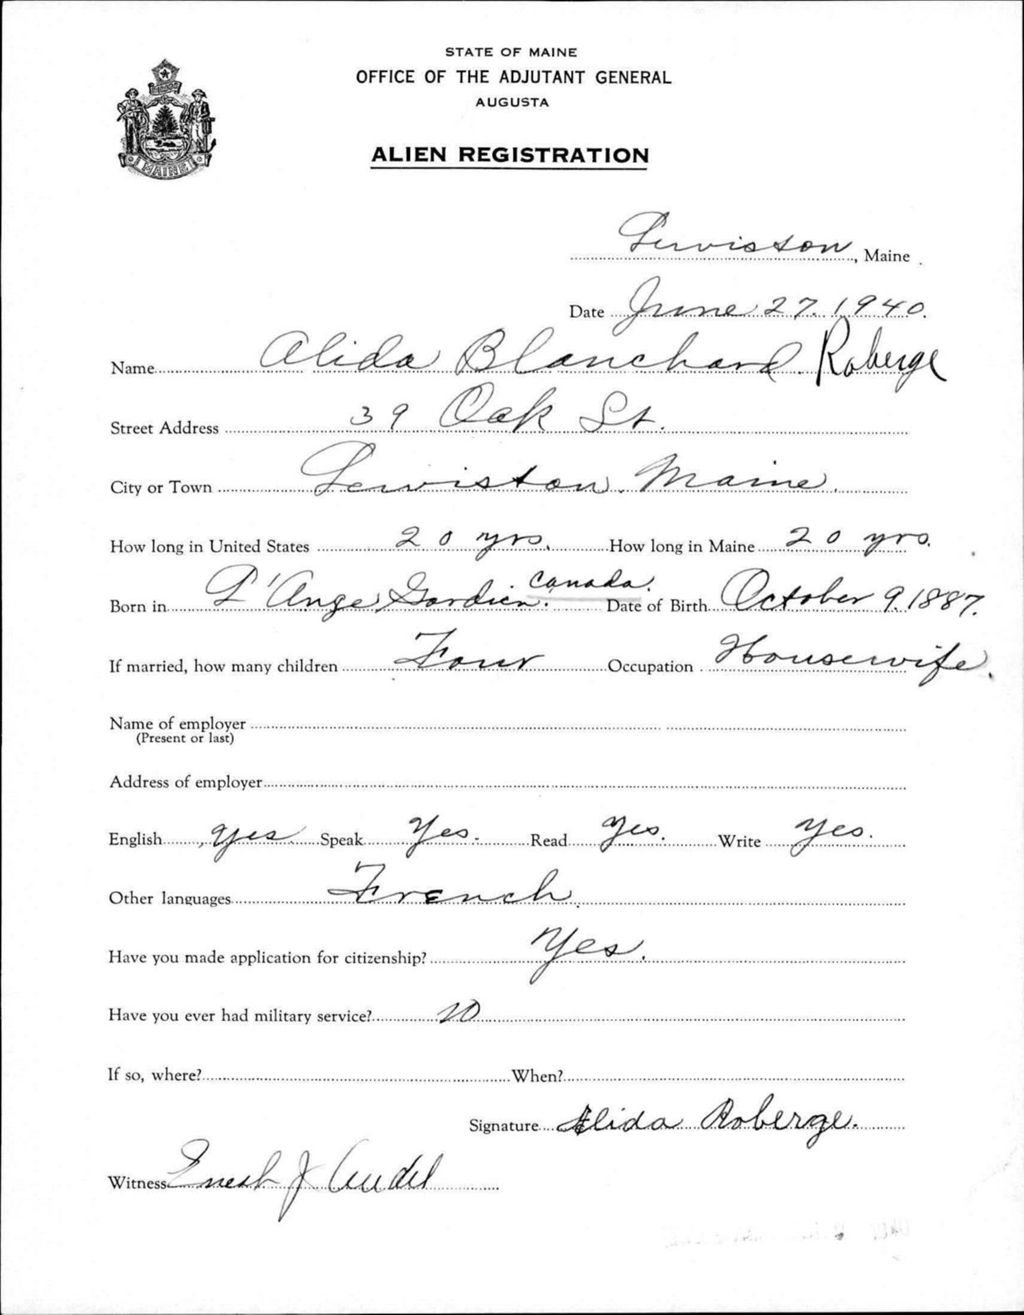 STATE OF MAINE
OFFICE OF THE ADJUTANT GENERAL
AUGUSTA
ALIEN REGISTRATION
MAINE
Lewiston, Maine
Date June 27, 1940.
Name Alida Blanchard Roberge
Street Address 39 Oak St.
City or Town Lewiston. Maine.
How long in United States 20 yrs. How long in Maine 20 yrs.
Born in L'Ange Gardien. Canada. Date of Birth October 9, 1887.
If married, how many children Four Occupation Housewife.
Name of employer
(Present or last)
Address of employer
English yes Speak Yes. Read Yes. Write Yes.
Other languages French
Have you made application for citizenship? Yes.
Have you ever had military service? no
If so, where? When?
Signature Alida Roberge.
Witness J